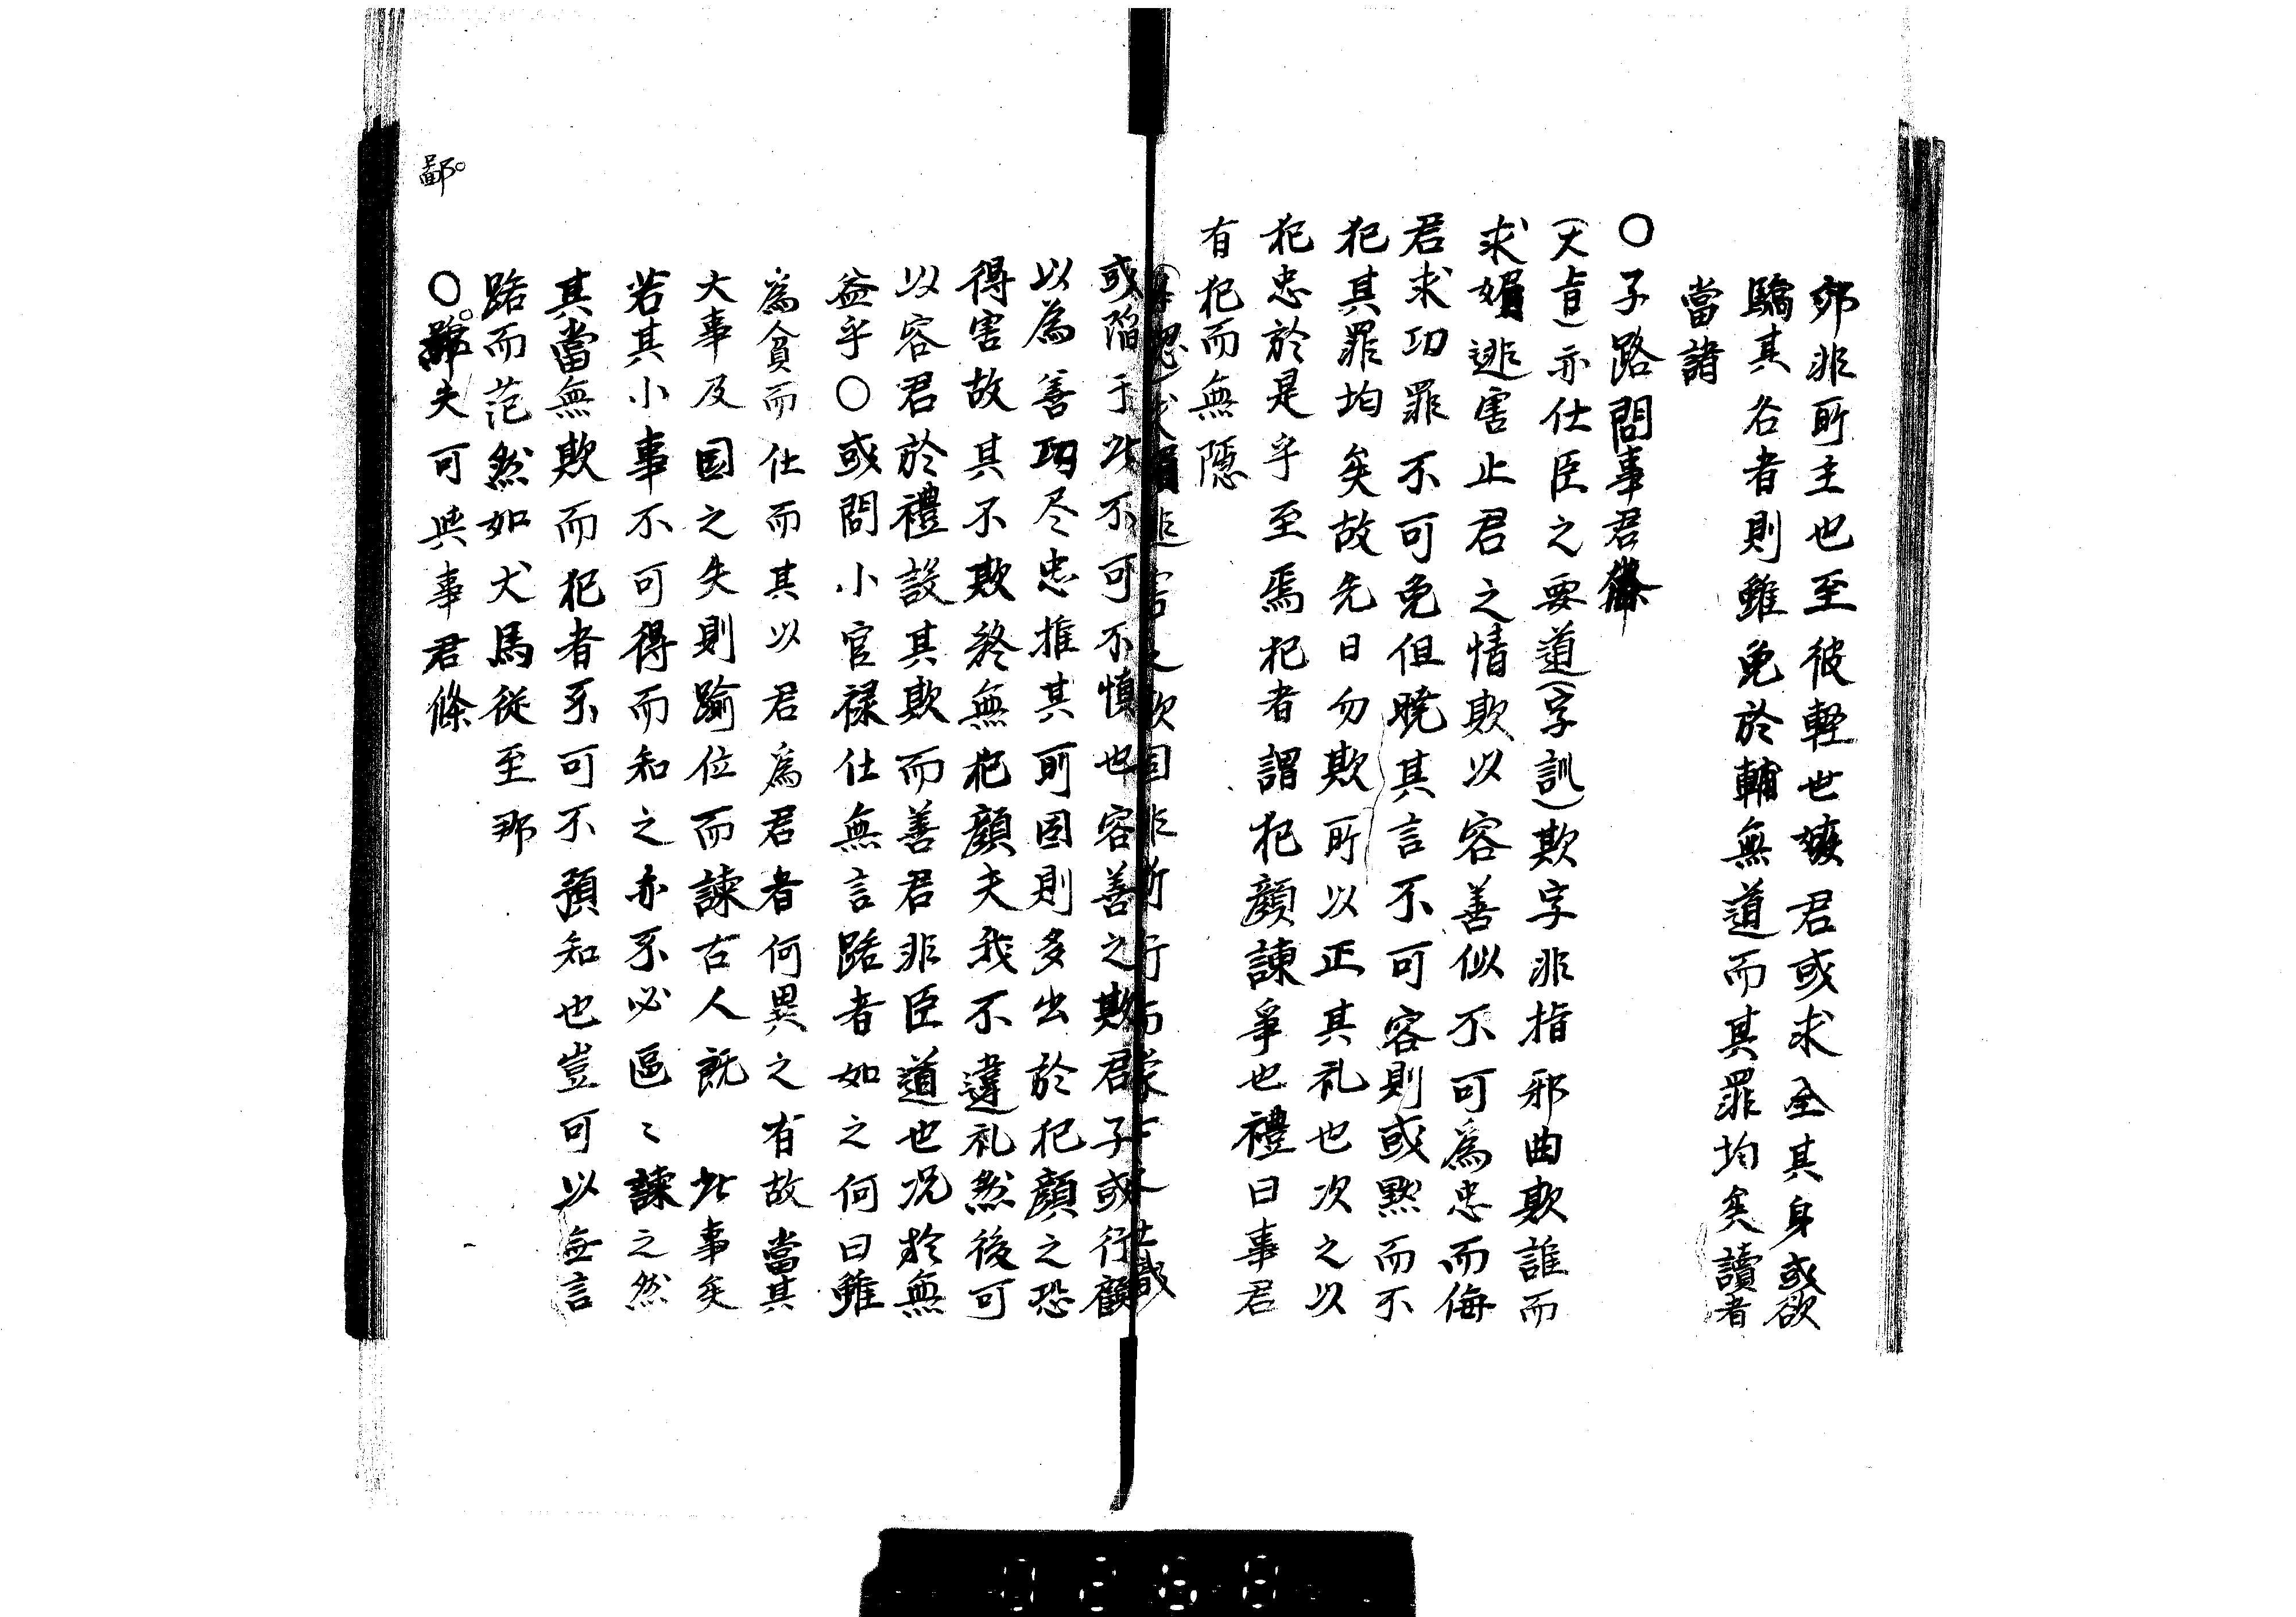 邪非所主也至彼軽世嫉君或求全其身或欲
驕其名者則雖免於輔無道而其罪均矣讀者
當諸
○子路問事君條
(大旨)亦仕臣之要道(字訓)欺字非指邪曲欺誰而
求媚逃害止君之情欺以容善似不可為忠而侮
君求功罪不可免但暁其言不可容則或黙而不
犯其罪均矣故先曰勿欺所以正其礼也次之以
犯忠於是乎至焉犯者謂犯顔諫爭也禮曰事君
有犯而無隱
媚逃害之欺固非所行而
或陥于此不可不慎也容善之欺君子或行顧
以為善功尽忠推其所固則多出於犯顔之恐
得害故其不欺終無犯顔夫我不違礼然後可
以容君於禮設其欺而善君非臣道也况於無
益乎○或問小官禄仕無言路者如之何曰雖
為貧而仕而其以君為君者何異之有故當其
大事及国之失則踰位而諫古人既此事矣
若其小事不可得而知之亦不必區〻諫之然
其當無欺而犯者不可不預知也豈可以無言
路而茫然如犬馬従至耶
○夫可與事君條
鄙